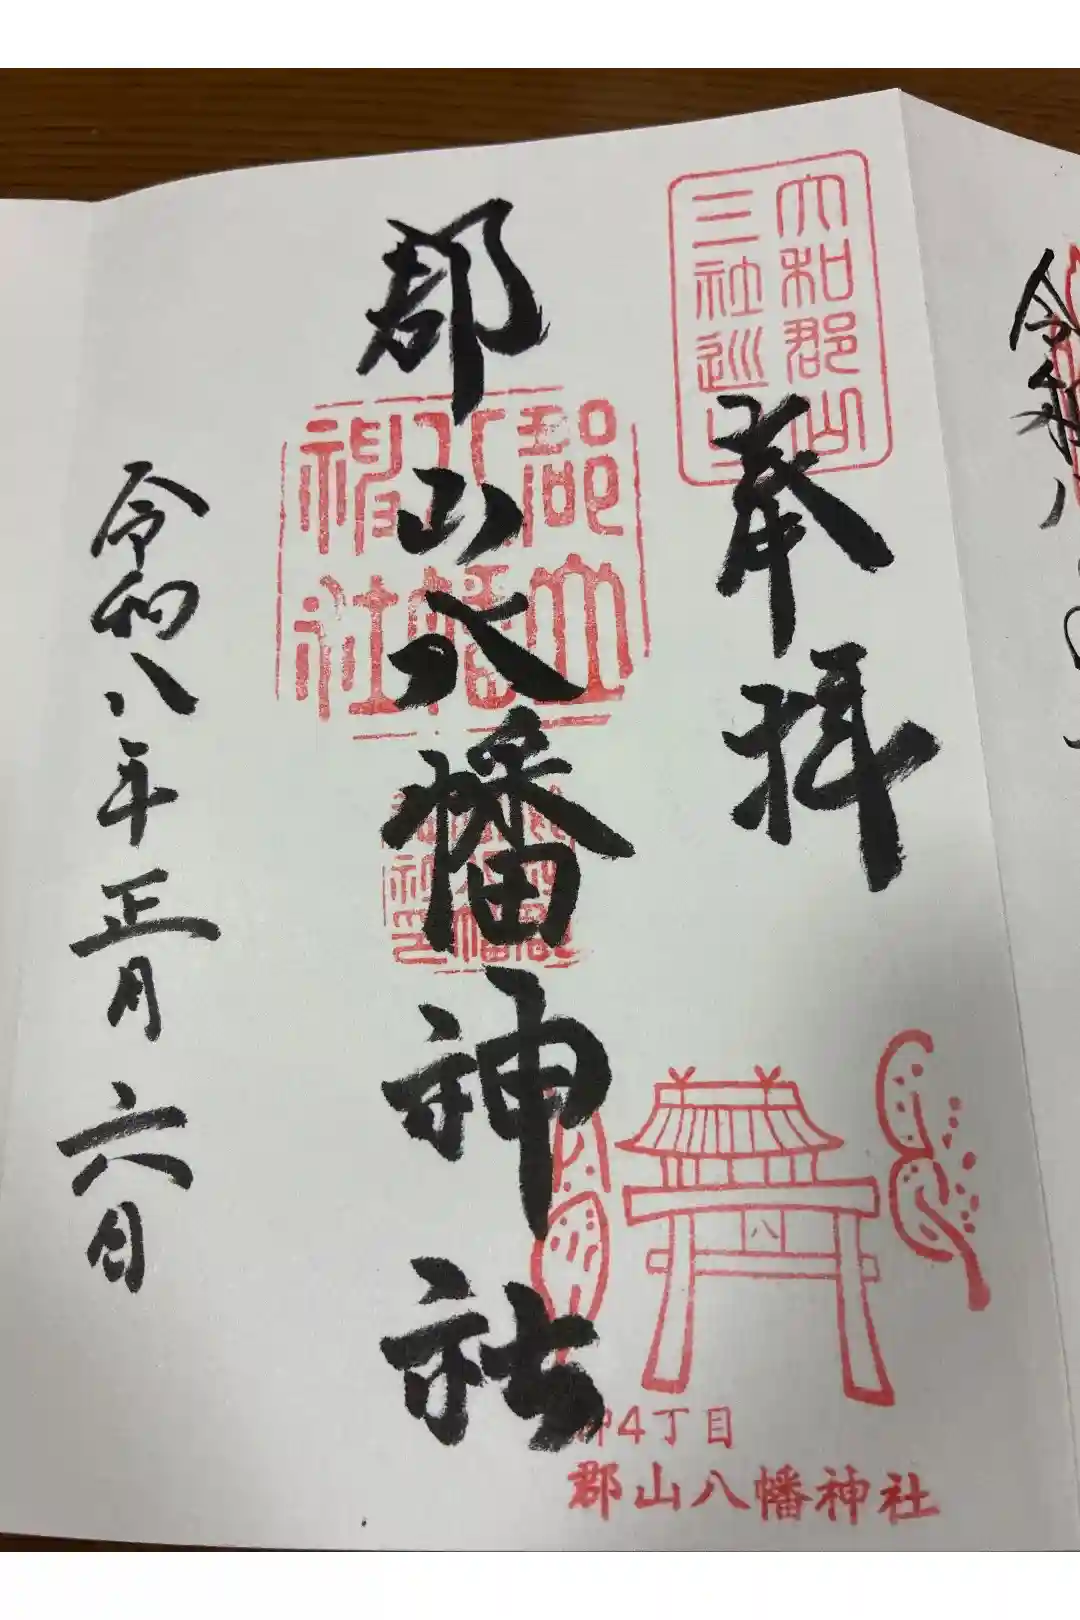 大和郡山
三社巡
奉拝
郡山八幡神社
郡山
八幡
神社
令和八年正月六日
八
4丁目
郡山八幡神社
令和八